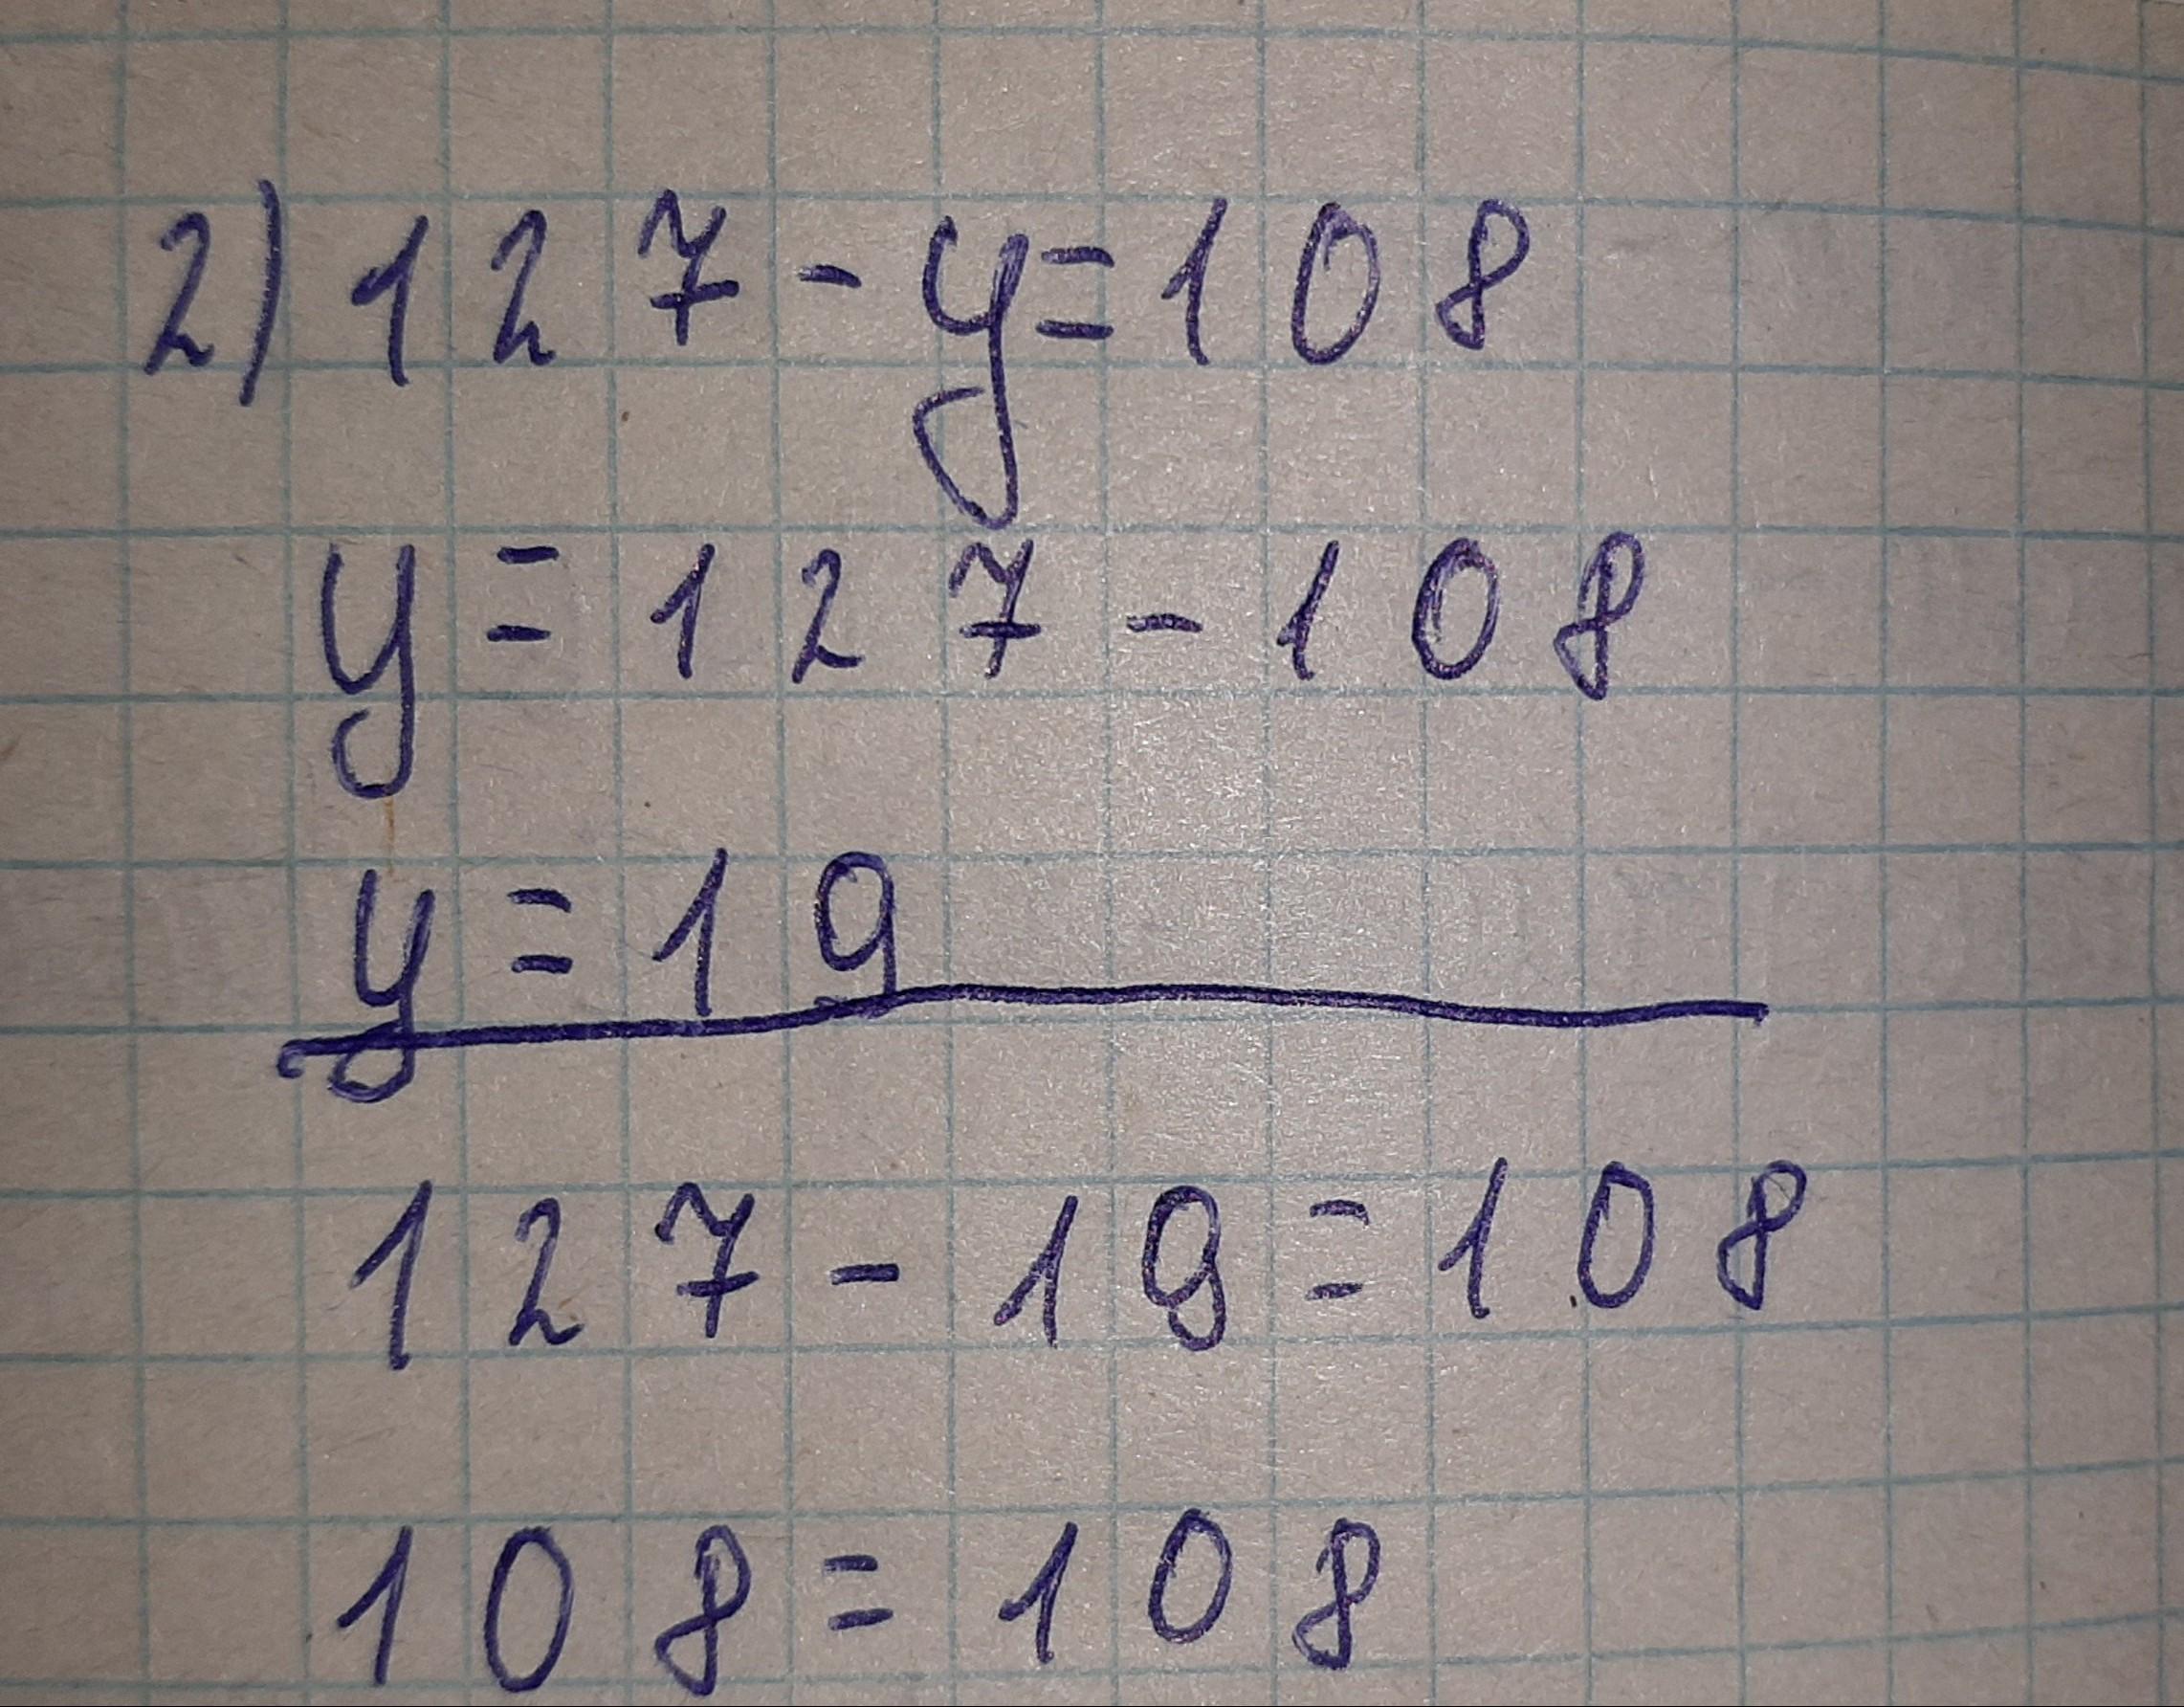 2) 127 - y = 108
y = 127 - 108
y = 19
127 - 19 = 108
108 = 108